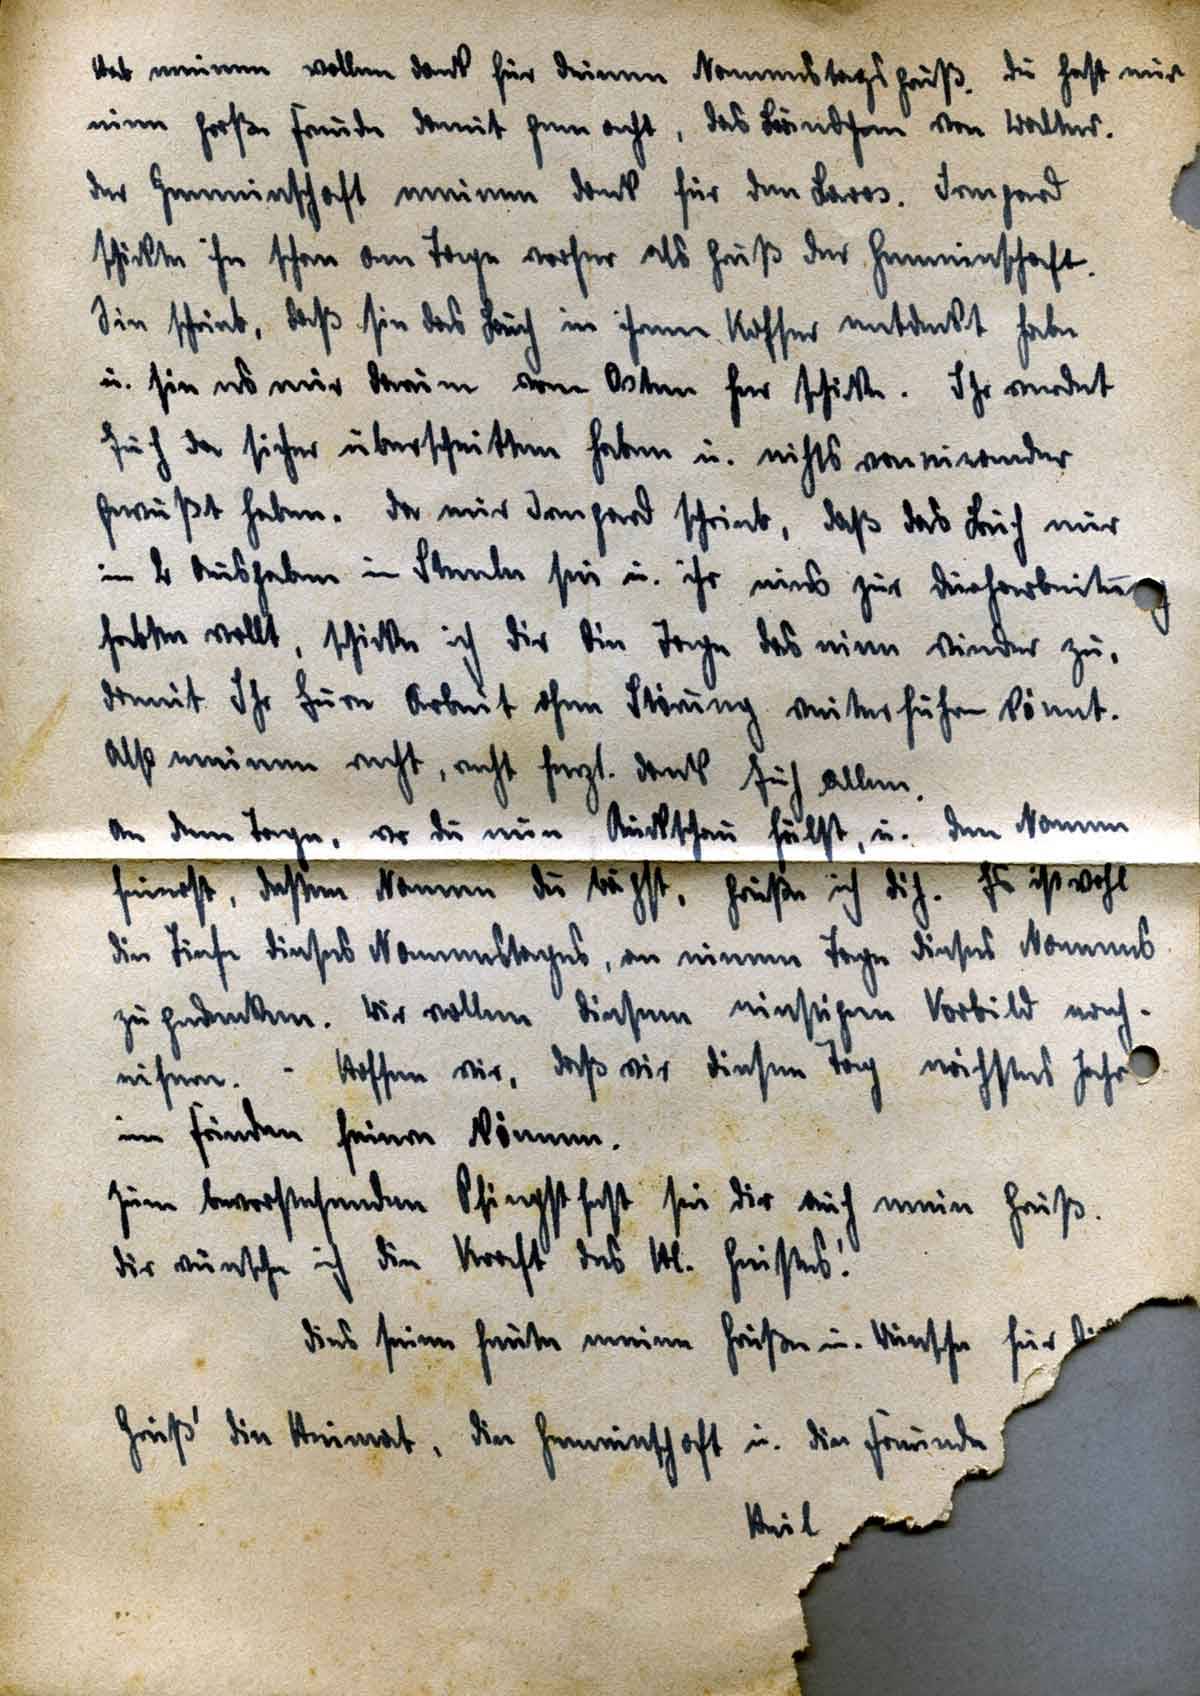 Hab meinen vollen Dank für Deinen Namenstagsgruß. Du hast mir
eine große Freude damit gemacht, das Bändchen von Walter.
Der Gemeinschaft meinen Dank für den Laros. Irmgard
schickte ihn schon am Tage vorher als Gruß der Gemeinschaft.
Sie schrieb, daß sie das Buch in ihrem Koffer entdeckt habe
u. sie es mir darum vom Osten her schicke. Ihr werdet
Euch da sicher überschnitten haben u. nichts voneinander
gewußt haben. Da mir Irmgard schrieb, daß das Buch nur
in 2 Ausgaben in Stande sei u. ihr eins zur Durcharbeitung
halten wollt, schicke ich Dir die Tage das eine wieder zu,
damit Ihr Eure Arbeit ohne Störung weiterführen könnt.
Also meinen recht, recht herzl. Dank Euch allen.
An dem Tage, wo Du nun Rückschau hälst, u. den Namen
feierst, dessen Namen Du trägst, grüße ich Dich. Es ist wohl
die Tiefe dieses Namenstages, an einem Tage dieses Namens
zu gedenken. Wir wollen diesem einstigen Vorbild nach-
eifern. - Hoffen wir, daß wir diesen Tag nächstes Jahr
im Frieden feiern können.
Zum bevorstehenden Pfingstfest sei Dir auch mein Gruß.
Dir wünsche ich die Kraft des Hl. Geistes!
Dies seien heute meine Grüße u. Wünsche für
Grüß' die Heimat, die Gemeinschaft u. die Freunde
Heil